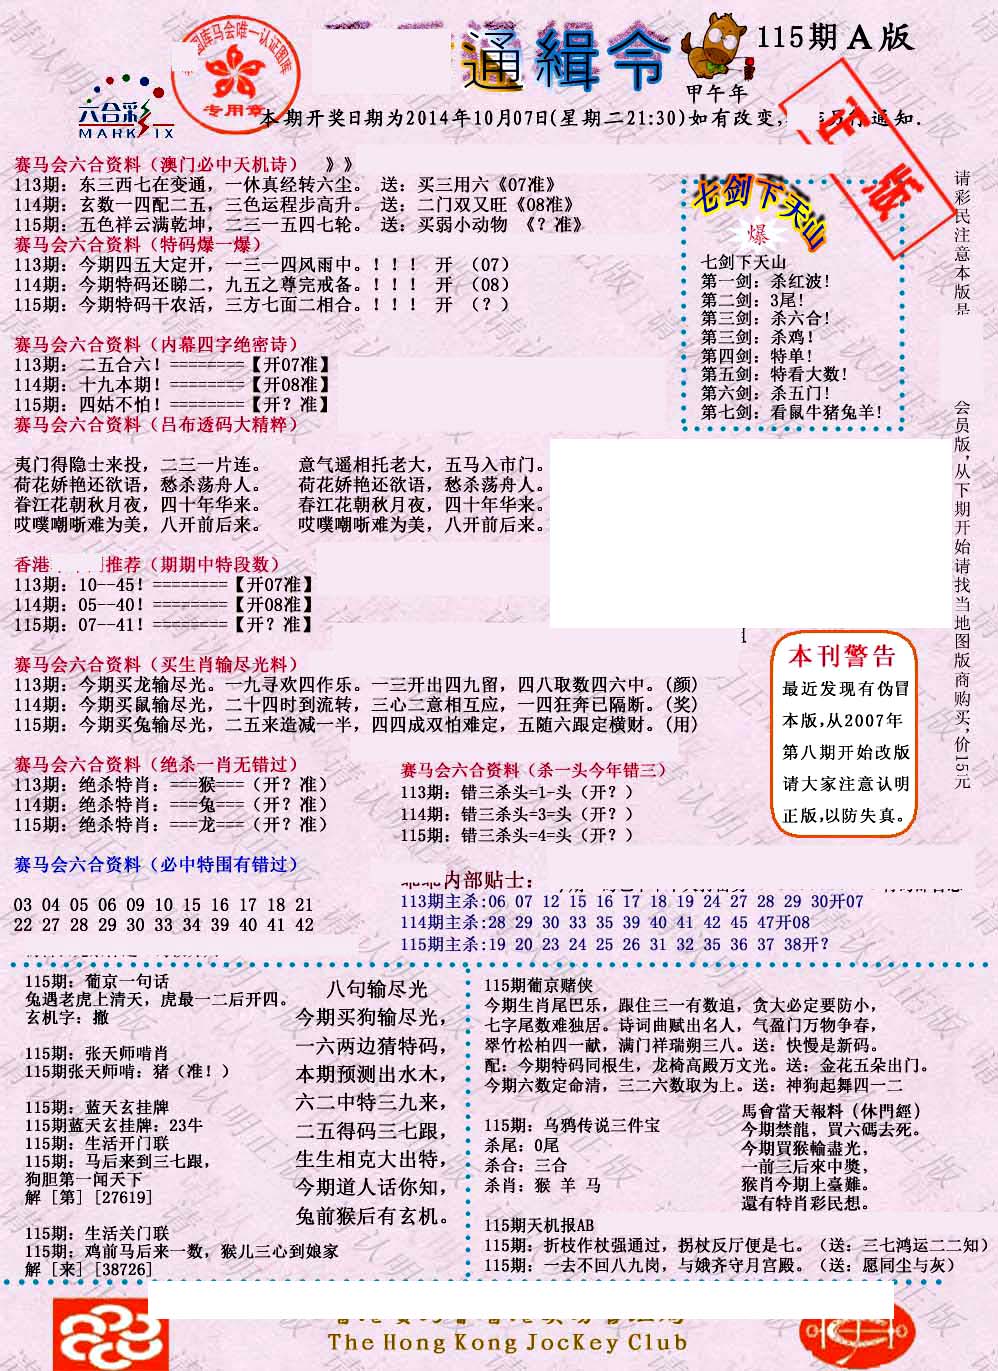 通緝令
115期A版
甲午年
六合彩
MARK SIX
专用章
本期开奖日期为2014年10月07日(星期二21:30)如有改变,
通知.
赛马会六合资料（澳门必中天机诗） 》》
113期：东三西七在变通，一休真经转六尘。 送：买三用六《07准》
114期：玄数一四配二五，三色运程步高升。 送：二门双又旺《08准》
115期：五色祥云满乾坤，二三一五四七轮。 送：买弱小动物 《？准》
赛马会六合资料（特码爆一爆）
113期：今期四五大定开，一三一四风雨中。！！！ 开 （07）
114期：今期特码还睇二，九五之尊完戒备。！！！ 开 （08）
115期：今期特码干农活，三方七面二相合。！！！ 开 （？）
赛马会六合资料（内幕四字绝密诗）
113期：二五合六！========【开07准】
114期：十九本期！========【开08准】
115期：四姑不怕！========【开？准】
赛马会六合资料（吕布透码大精粹）
夷门得隐士来投，二三一片连。 意气遥相托老大，五马入市门。
荷花娇艳还欲语，愁杀荡舟人。 荷花娇艳还欲语，愁杀荡舟人。
春江花朝秋月夜，四十年华来。 春江花朝秋月夜，四十年华来。
哎噗嘲哳难为美，八开前后来。 哎噗嘲哳难为美，八开前后来。
香港 推荐（期期中特段数）
113期：10--45！========【开07准】
114期：05--40！========【开08准】
115期：07--41！========【开？准】
赛马会六合资料（买生肖输尽光料）
113期：今期买龙输尽光。一九寻欢四作乐。一三开出四九留，四八取数四六中。(颜)
114期：今期买鼠输尽光，二十四时到流转，三心二意相互应，一四狂奔已隔断。(奖)
115期：今期买兔输尽光，二五来造减一半，四四成双怕难定，五随六跟定横财。(用)
赛马会六合资料（绝杀一肖无错过）
113期：绝杀特肖：===猴===（开？准）
114期：绝杀特肖：===兔===（开？准）
115期：绝杀特肖：===龙===（开？准）
赛马会六合资料（杀一头今年错三）
113期：错三杀头=1-头（开？）
114期：错三杀头=3=头（开？）
115期：错三杀头=4=头（开？）
赛马会六合资料（必中特围有错过）
03 04 05 06 09 10 15 16 17 18 21
22 27 28 29 30 33 34 39 40 41 42
内部贴士：
113期主杀:06 07 12 15 16 17 18 19 24 27 28 29 30开07
114期主杀:28 29 30 33 35 39 40 41 42 45 47开08
115期主杀:19 20 23 24 25 26 31 32 35 36 37 38开？
七剑下天山
爆
七剑下天山
第一剑：杀红波！
第二剑：3尾！
第三剑：杀六合！
第三剑：杀鸡！
第四剑：特单！
第五剑：特看大数！
第六剑：杀五门！
第七剑：看鼠牛猪兔羊！
请彩民注意本版是
会员版，从下期开始请找当地图版商购买，价15元
本刊警告
最近发现有伪冒
本版,从2007年
第八期开始改版
请大家注意认明
正版,以防失真。
115期：葡京一句话
兔遇老虎上清天，虎最一二后开四。
玄机字：撤
115期：张天师啃肖
115期张天师啃：猪（准！）
115期：蓝天玄挂牌
115期蓝天玄挂牌：23牛
115期：生活开门联
115期：马后来到三七跟，
狗胆第一闻天下
解［第］[27619]
115期：生活关门联
115期：鸡前马后来一数，猴儿三心到娘家
解［来］[38726]
八句输尽光
今期买狗输尽光，
一六两边猜特码，
本期预测出水木，
六二中特三九来，
二五得码三七跟，
生生相克大出特，
今期道人话你知，
兔前猴后有玄机。
115期葡京赌侠
今期生肖尾巴乐，跟住三一有数追，贪大必定要防小，
七字尾数难独居。诗词曲赋出名人，气盈门万物争春，
翠竹松柏四一献，满门祥瑞朔三八。送：快慢是新码。
配：今期特码同根生，龙椅高殿万文光。送：金花五朵出门。
今期六数定命清，三二六数取为上。送：神狗起舞四一二
115期：乌鸦传说三件宝
杀尾：0尾
杀合：三合
杀肖：猴 羊 马
馬會當天報料（休門經）
今期禁龍，買六碼去死。
今期買猴輸盡光，
一前三后來中獎，
猴肖今期上臺難。
還有特肖彩民想。
115期天机报AB
115期：折枝作杖强通过，拐杖反厅便是七。（送：三七鸿运二二知）
115期：一去不回八九岗，与娥齐守月宫殿。（送：愿同尘与灰）
The Hong Kong JocKey Club